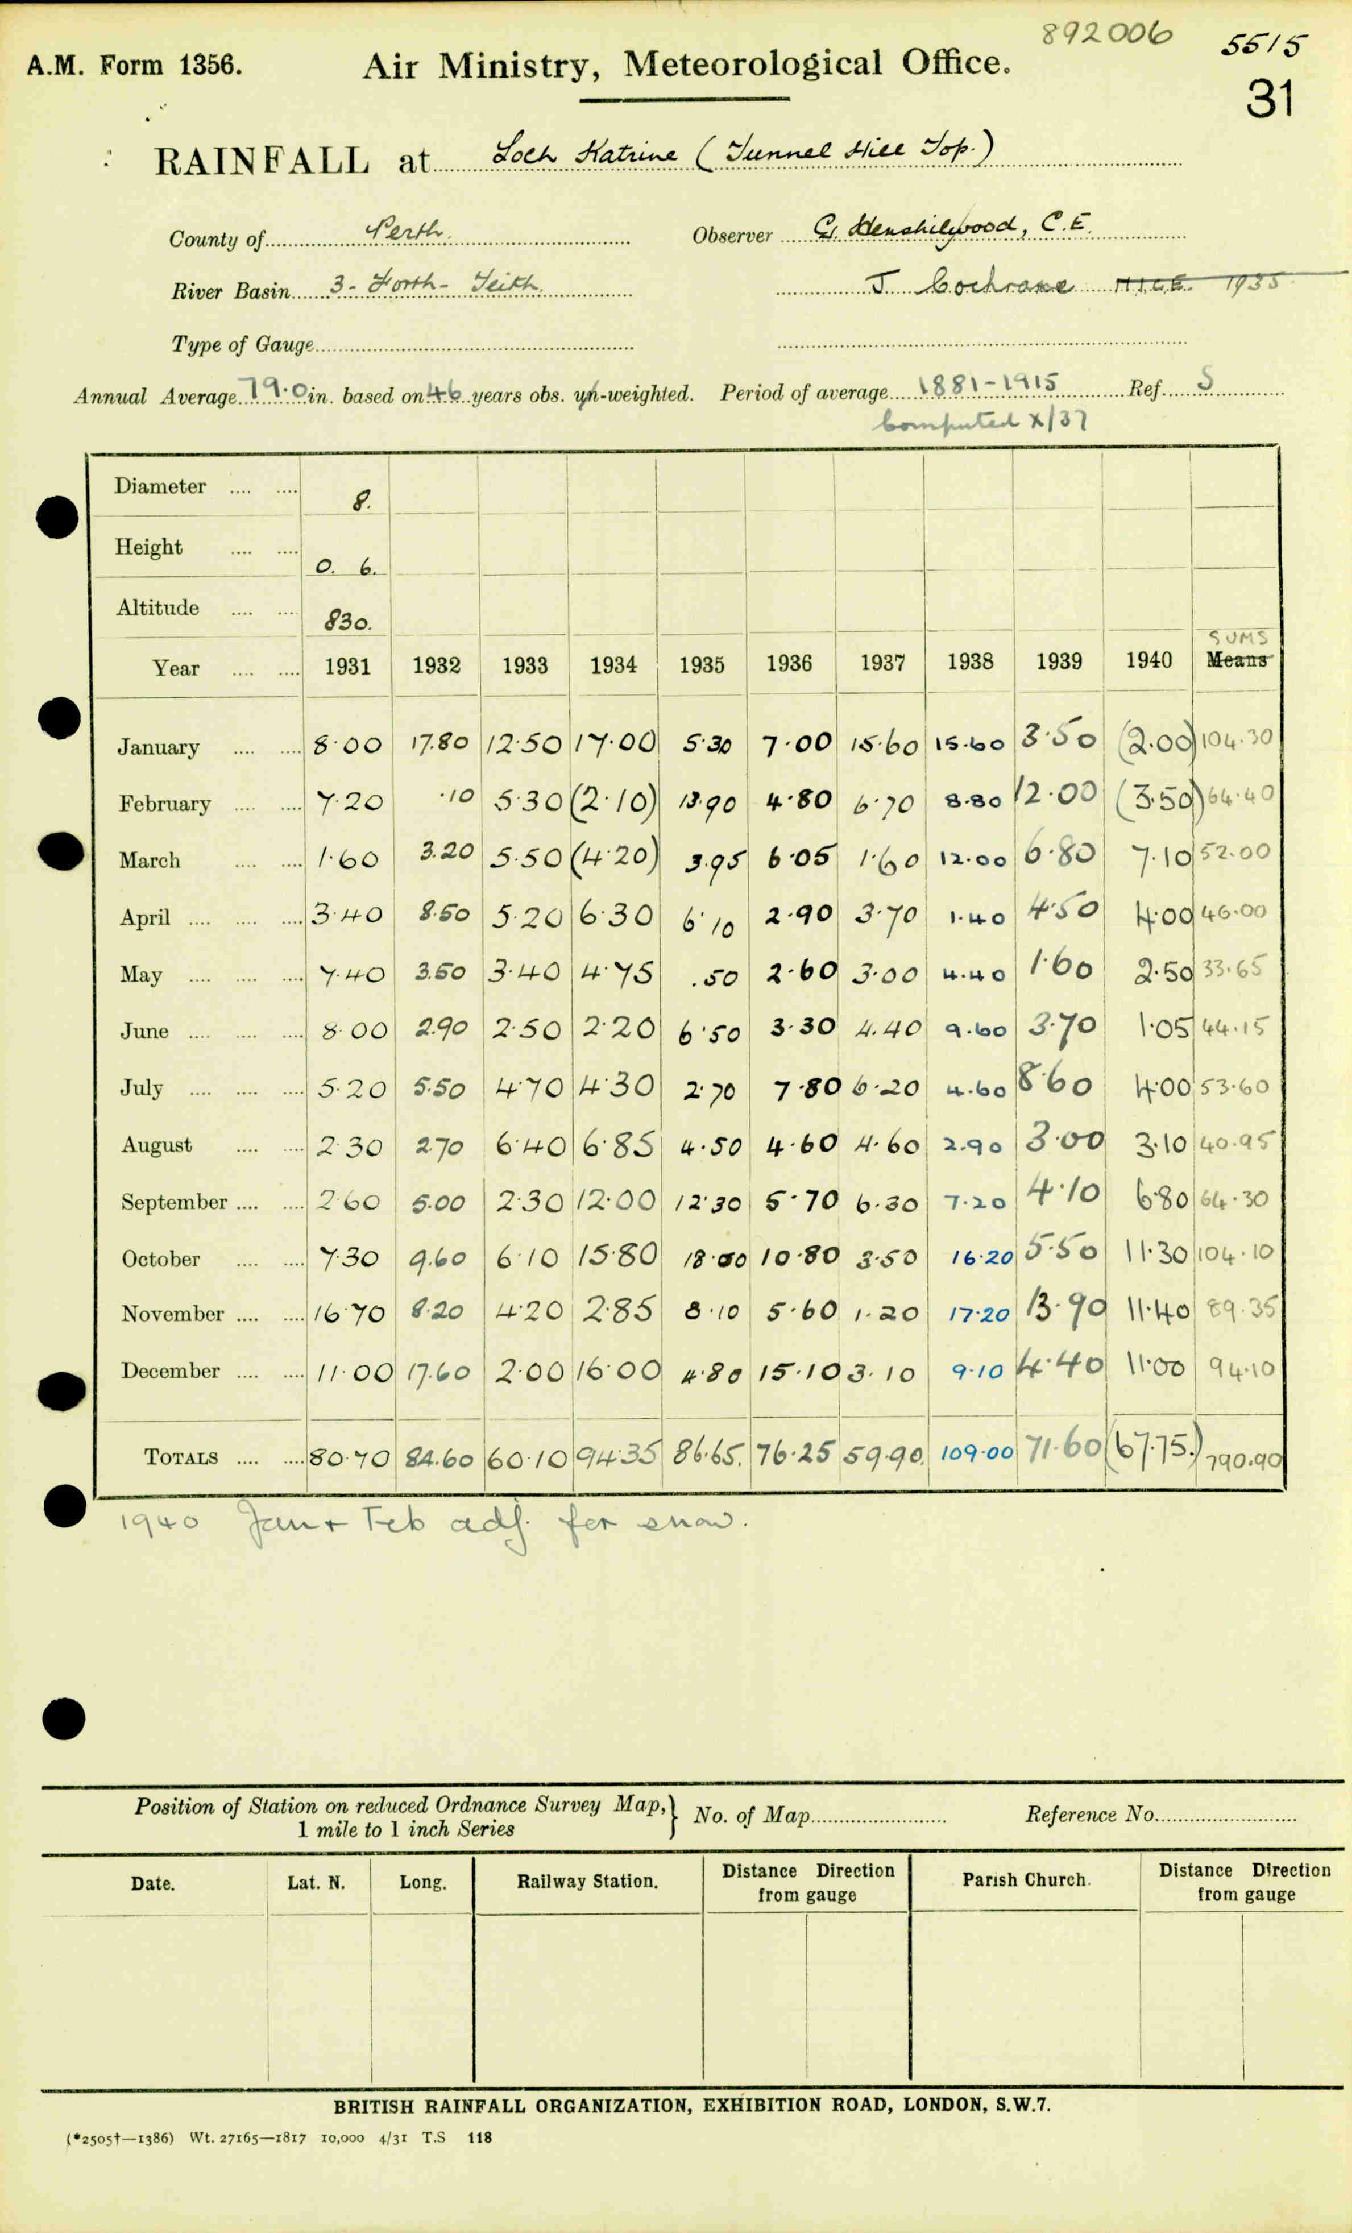 892006
5515
A.M. Form 1356. Air Ministry, Meteorological Office.
31
RAINFALL at Loch Katrine (Tunnel Hill Top.)
County of Perth. Observer G. Henshilwood, C.E.
River Basin 3 - Forth - Teith. J Cochrane M.I.C.E. 1935
Type of Gauge
Annual Average 79.0 in. based on 46 years obs. un-weighted. Period of average 1881-1915 Ref. S
Computed X/37
Diameter .... .... 8.
Height .... .... 0. 6.
Altitude .... .... 830.
SUMS
Year .... .... 1931 1932 1933 1934 1935 1936 1937 1938 1939 1940 Means
January .... .... 8.00 17.80 12.50 17.00 5.30 7.00 15.60 15.60 3.50 (2.00) 104.30
February .... .... 7.20 .10 5.30 (2.10) 13.90 4.80 6.70 8.80 12.00 (3.50) 64.40
March .... .... 1.60 3.20 5.50 (4.20) 3.95 6.05 1.60 12.00 6.80 7.10 52.00
April .... .... .... 3.40 8.50 5.20 6.30 6.10 2.90 3.70 1.40 4.50 4.00 46.00
May .... .... .... 7.40 3.50 3.40 4.75 .50 2.60 3.00 4.40 1.60 2.50 33.65
June .... .... .... 8.00 2.90 2.50 2.20 6.50 3.30 4.40 9.60 3.70 1.05 44.15
July .... .... .... 5.20 5.50 4.70 4.30 2.70 7.80 6.20 4.60 8.60 4.00 53.60
August .... .... 2.30 2.70 6.40 6.85 4.50 4.60 4.60 2.90 3.00 3.10 40.95
September .... .... 2.60 5.00 2.30 12.00 12.30 5.70 6.30 7.20 4.10 6.80 64.30
October .... .... 7.30 9.60 6.10 15.80 18.00 10.80 3.50 16.20 5.50 11.30 104.10
November .... .... 16.70 8.20 4.20 2.85 8.10 5.60 1.20 17.20 13.90 11.40 89.35
December .... .... 11.00 17.60 2.00 16.00 4.80 15.10 3.10 9.10 4.40 11.00 94.10
TOTALS .... .... 80.70 84.60 60.10 94.35 86.65. 76.25 59.90. 109.00 71.60 (67.75.) 790.90
1940 Jan + Feb adj. for snow.
Position of Station on reduced Ordnance Survey Map,} No. of Map Reference No.
1 mile to 1 inch Series
Date. Lat. N. Long. Railway Station. Distance Direction from gauge Parish Church. Distance Direction from gauge
BRITISH RAINFALL ORGANIZATION, EXHIBITION ROAD, LONDON, S.W.7.
(*2505†—1386) Wt. 27165—1817 10,000 4/31 T.S 118